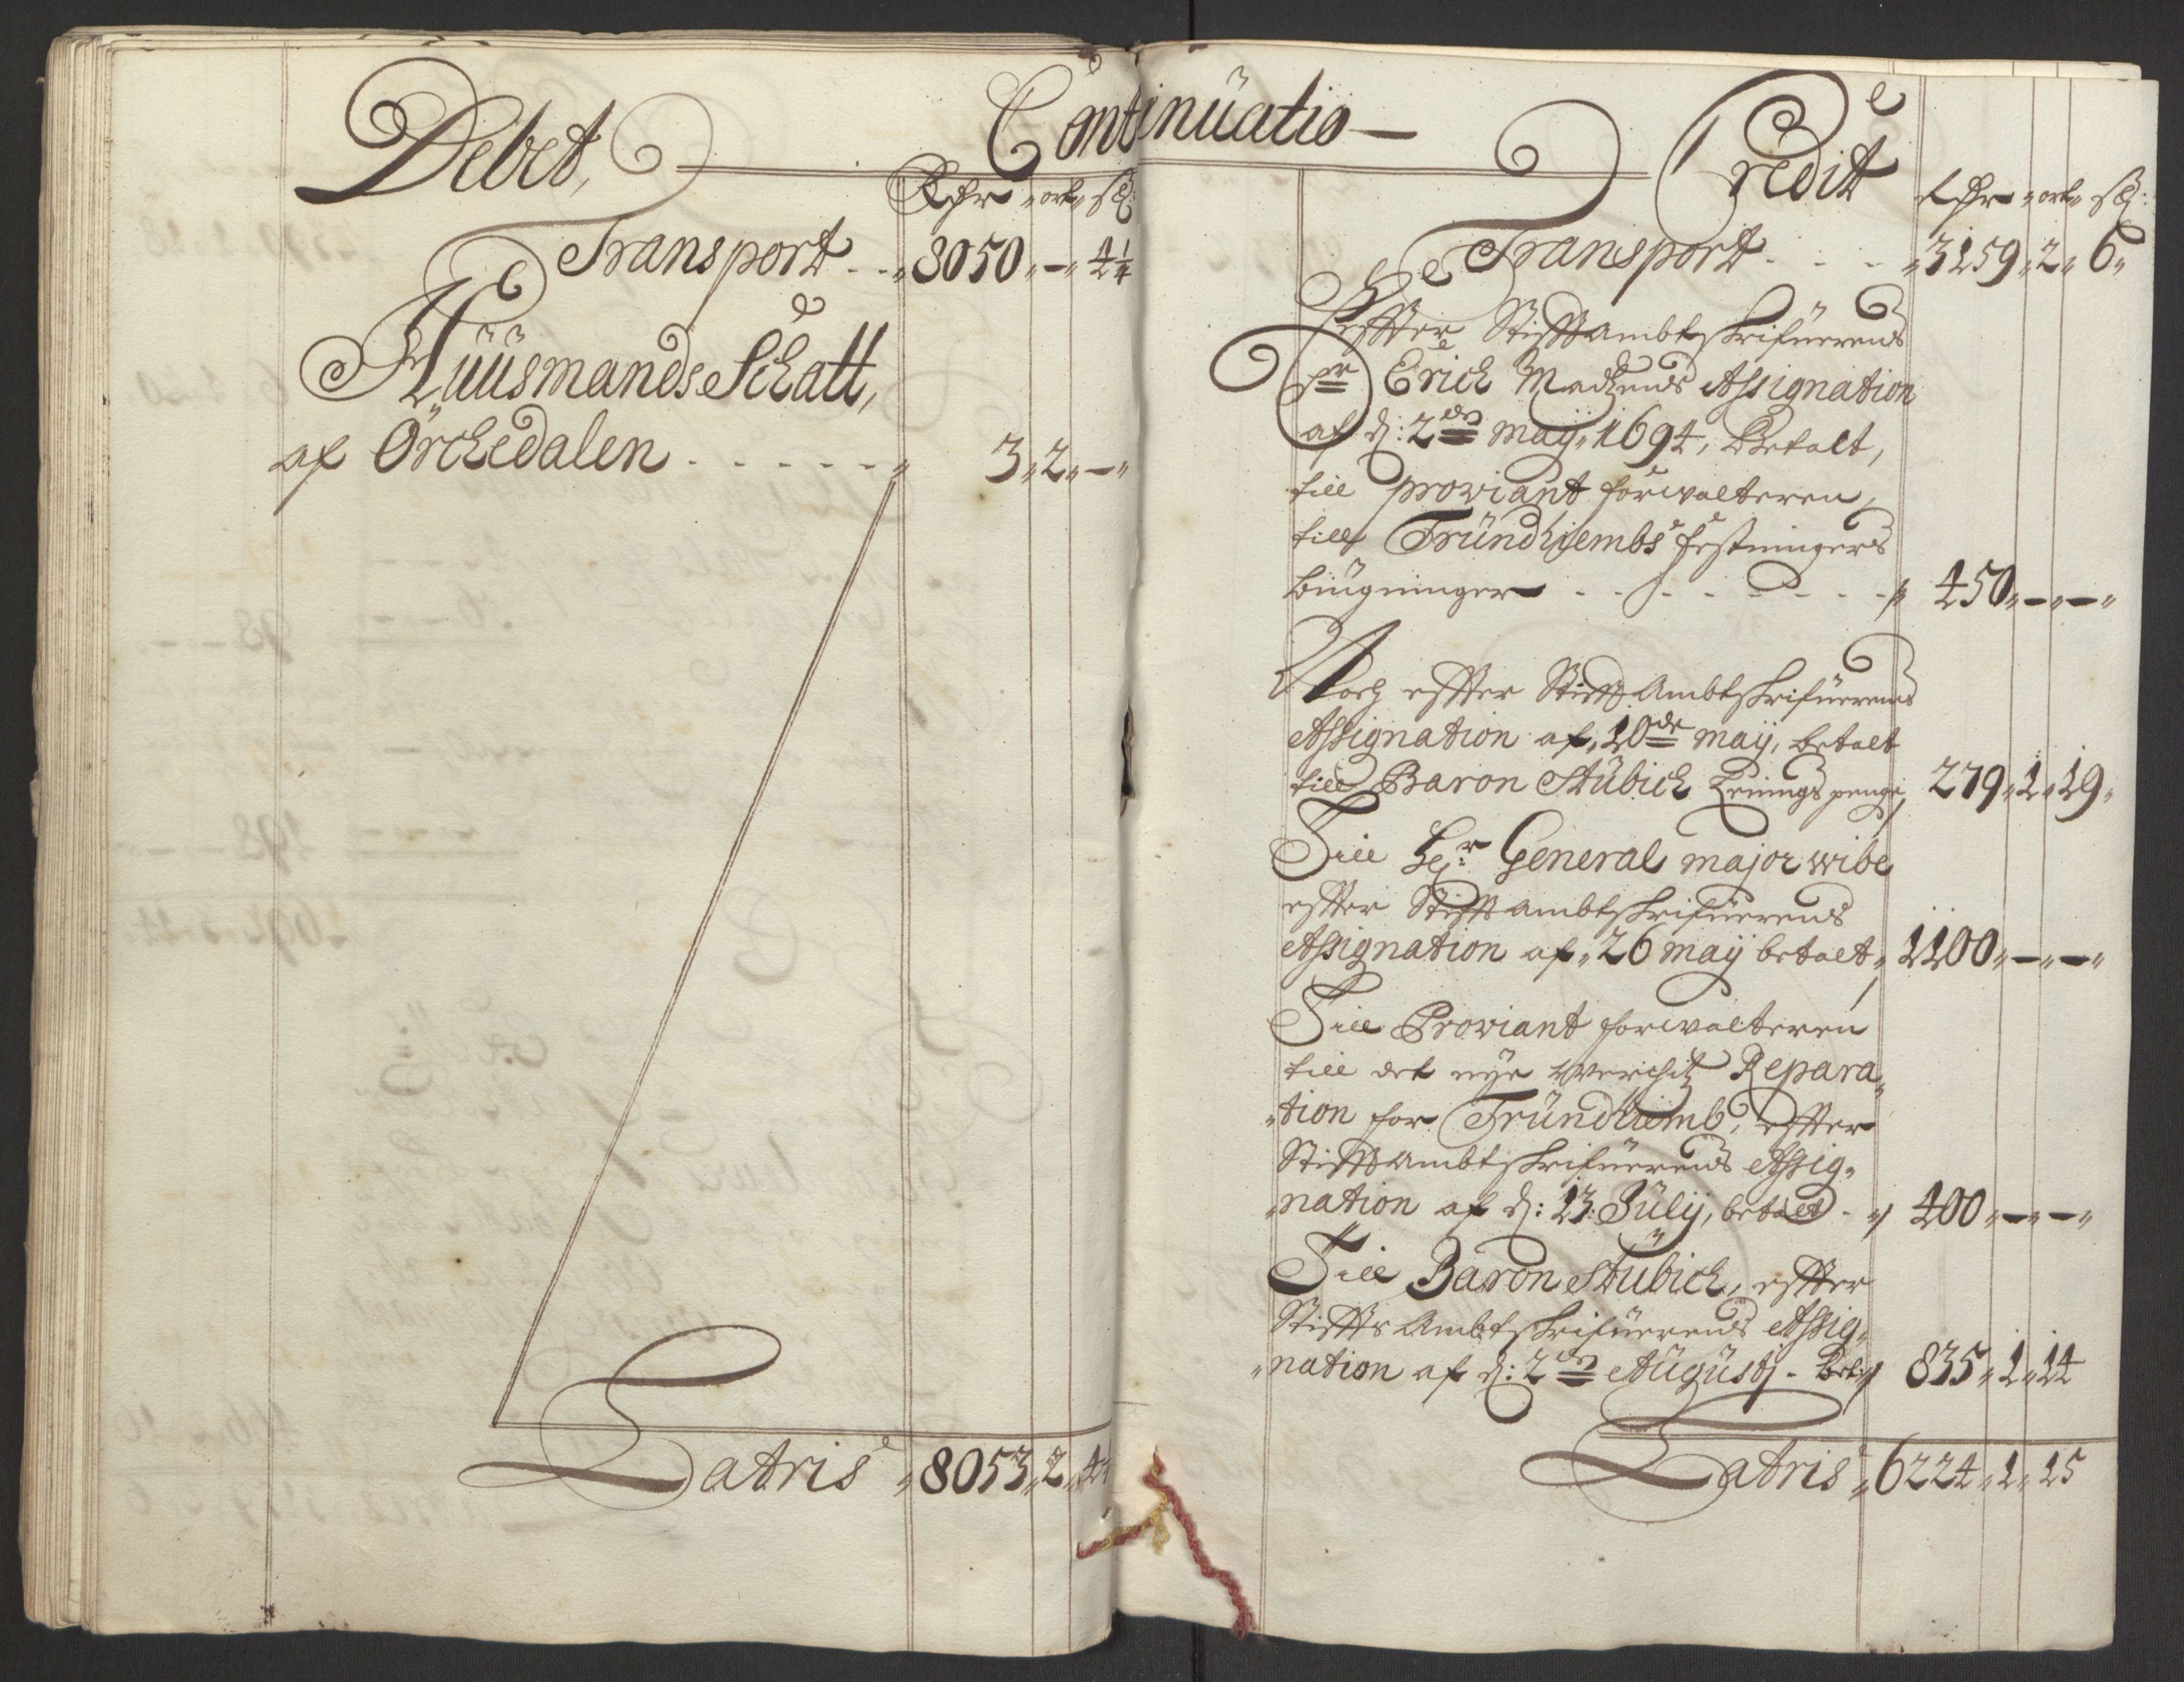 Debet,
Continuatio
Rdr ort sk:
Transport 8050 - 4 1/4
Huüsmands Schatt,
af Örchedalen 3 2 -
Latris 8053 2 4 1/4
Credit
Rdr ort sk:
Transport 3159 2 6
Effter Stifftambtskrifuerens
Sr Erich Madtzens Assignation
af d: 2den Maij 1694, Betalt,
till proviant forvalteren,
till Tründhiembs festningers
bÿgninger 450 - -
Noch effter StifftAmbtskrifuerens
Assignation af 10de Maij, betalt
till Baron Stübich Tærings penge, 279 1 19
Till Hr: General major Wibe
effter Stifftambtskrifuerens
Assignation af 26 Maij betalt 1100 - -
Till Proviant forvalteren
till det nÿe Repara
tion for Tründhiemb, effter
Stifftambtskrifuerens Assig
nation af d: 13: Julij, betalt 400 - -
Till Baron Stübich, effter
Stiffts Ambtskrifuerens Assig
nation af d: 2den Augustj. bet: 835 1 14
Latris 6224 1 15